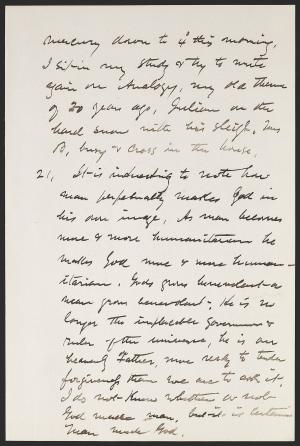 mercury down to 4° this morning.
I sit in my study & try to write
again on Analogy, my old theme
of 20 years ago, Julian on the
hard snow with his sleigh, Mrs
B, busy & cross in the house.
21, It is interesting to note how
man perpetually makes God in
his own image. As man becomes
more & more humanitarian he
makes God more & more human-
itarian. Gods grows benevolent as
man grows benevolent. He is no
longer the implacable Governor &
ruler of the universe, he is our
heavenly Father, more ready to tender
forgiveness than we are to ask it.
I do not know whether or not
God made man, but it is certain
man made God.